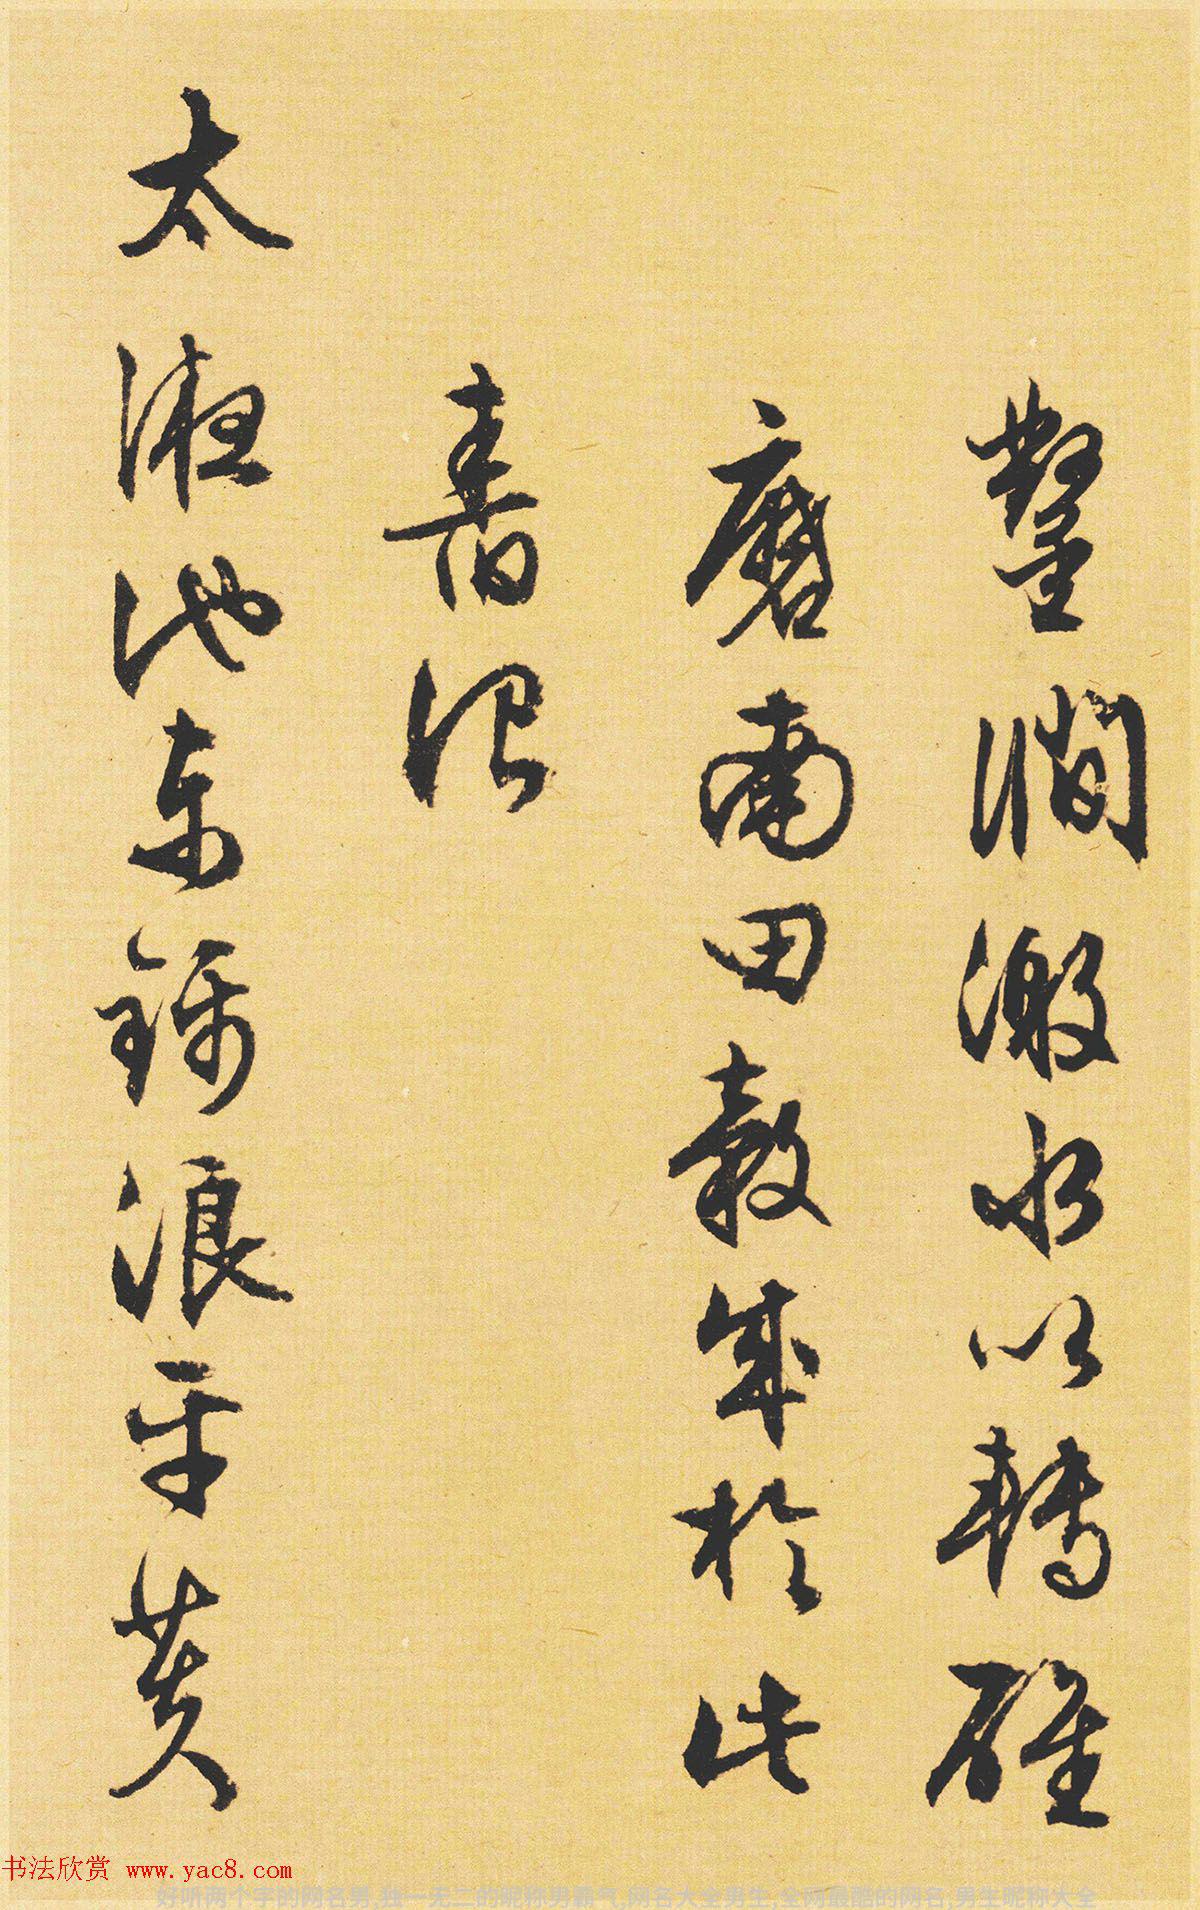 鑿澗激水以轉碓
磨南田穀成於此
舂治
太液池東錦浪平芙
书法欣赏 www.yac8.com
好听两个字的网名男,独一无二的昵称男霸气,网名大全男生,全网最酷的网名,男生昵称大全